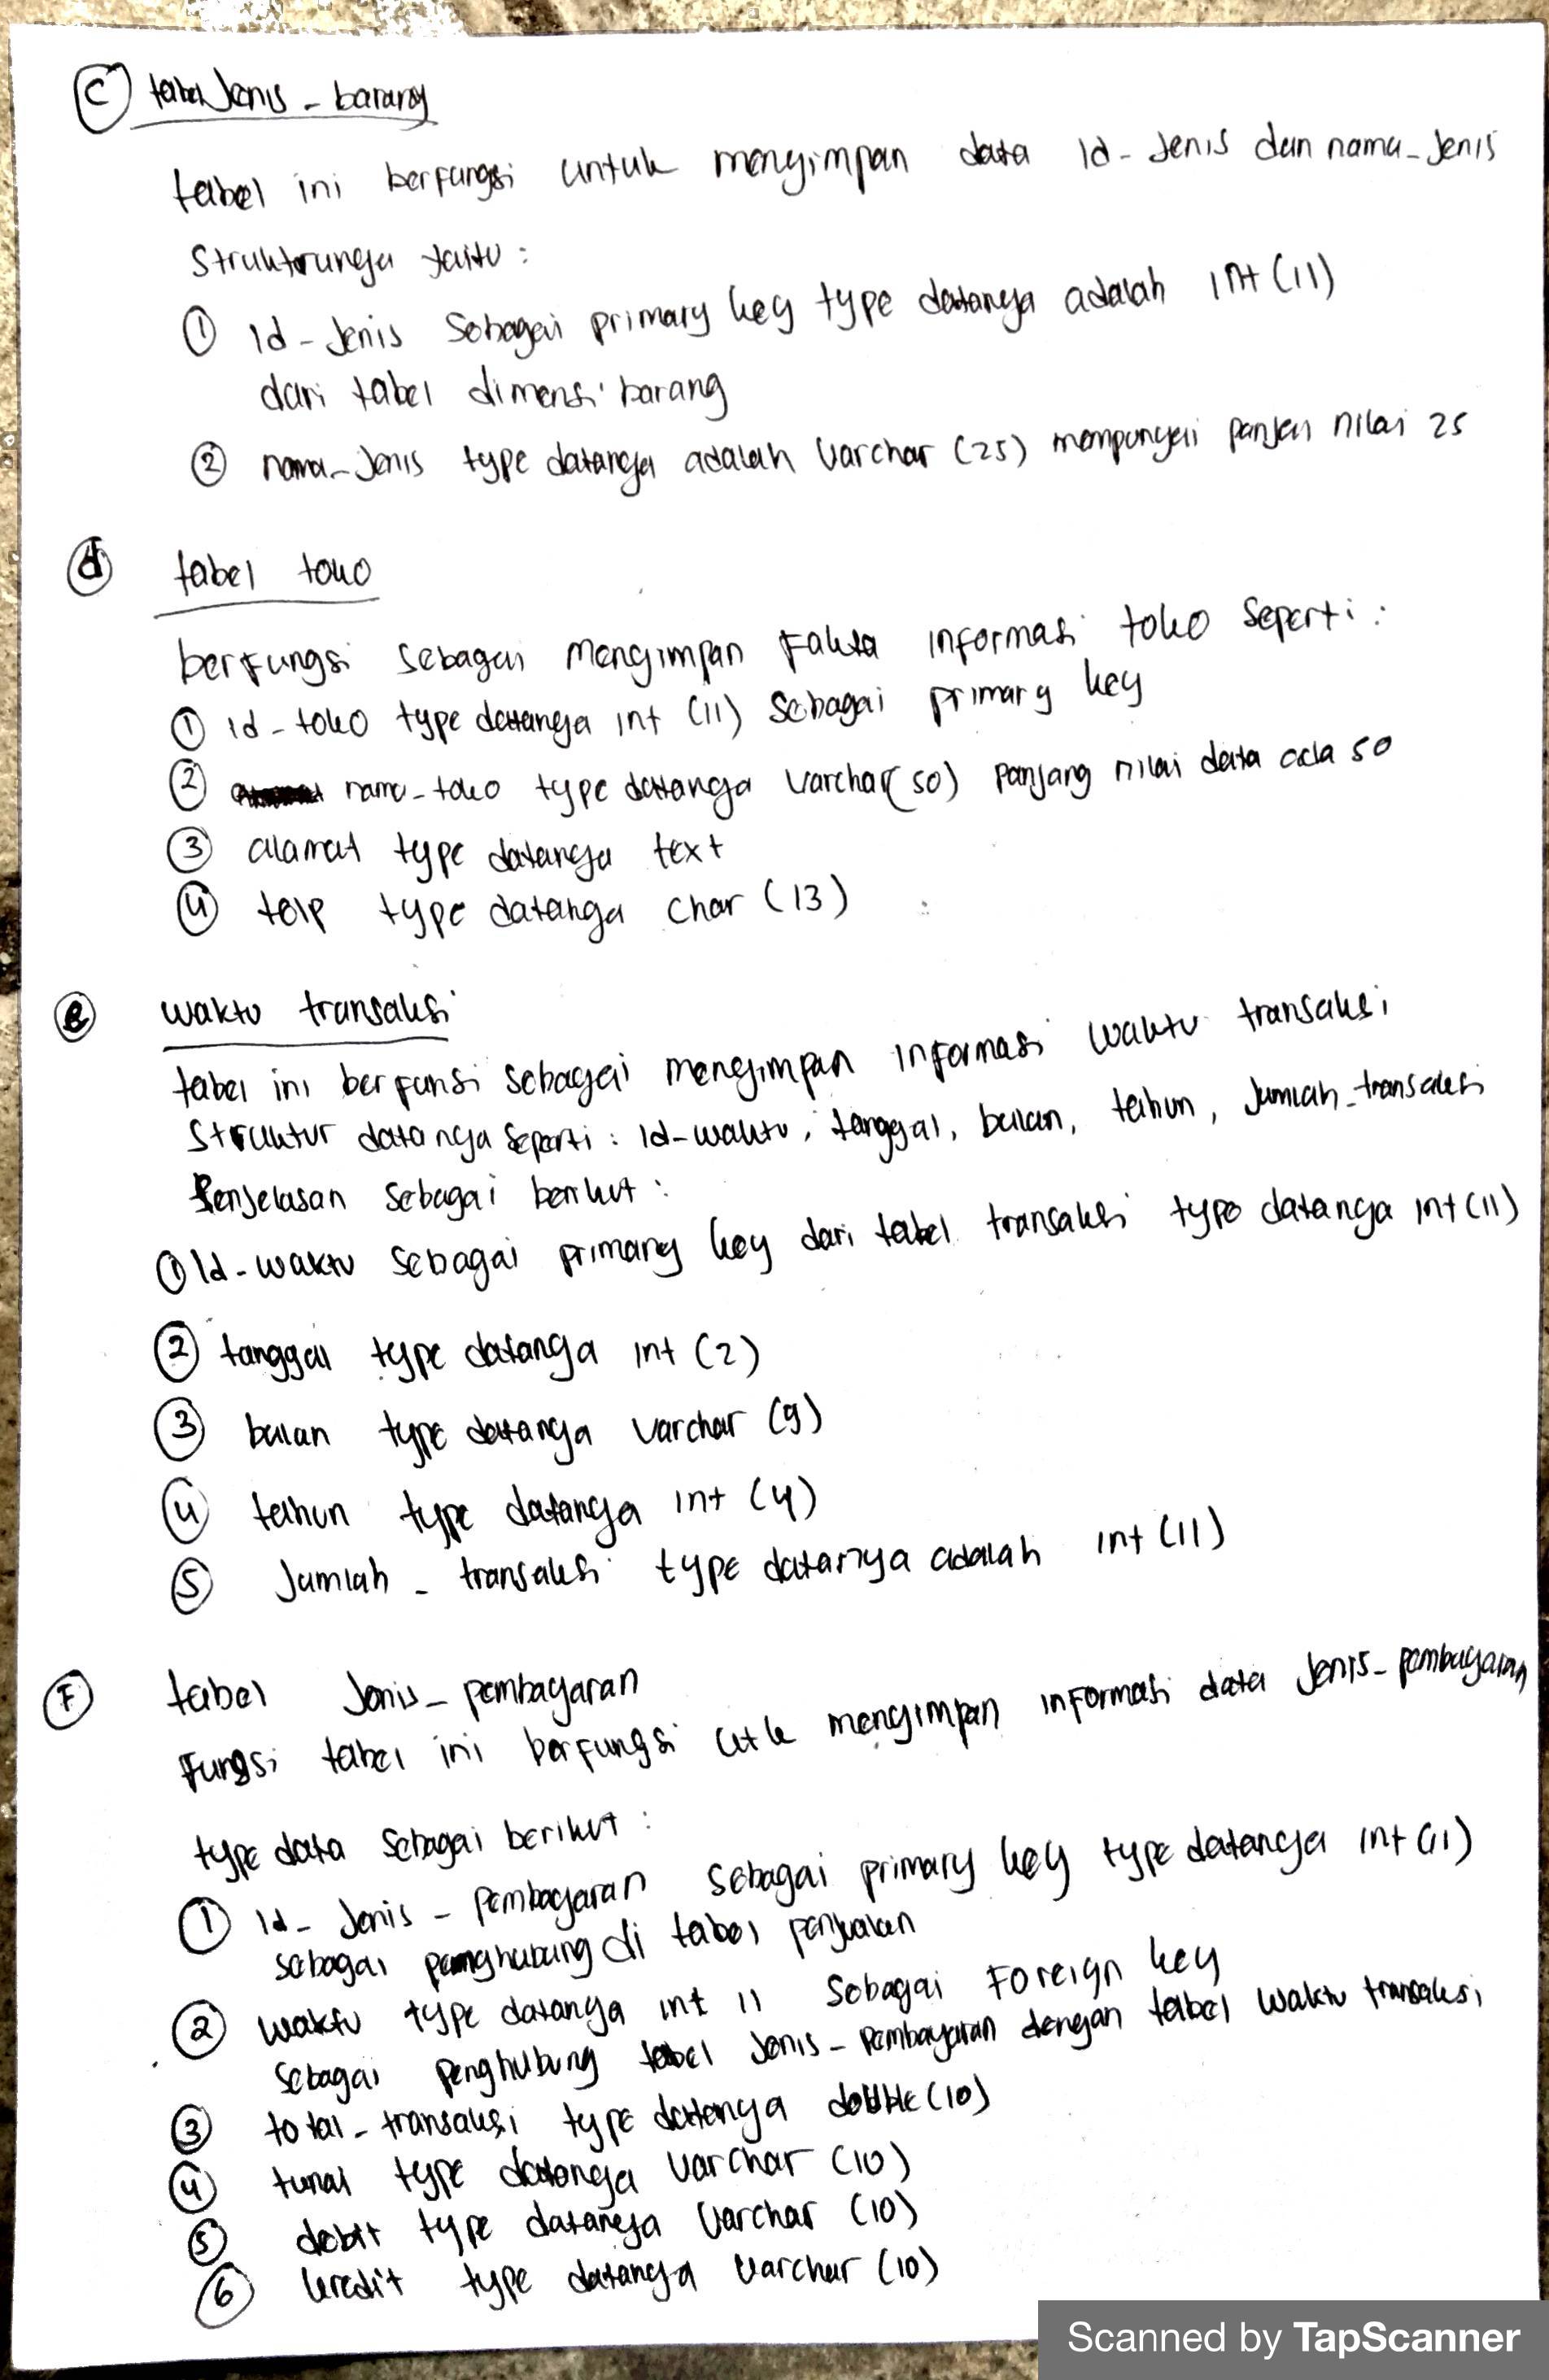 C tabel Jenis - barang
tabel ini berfungsi untuk menyimpan data id - Jenis dan nama - Jenis
Strukturunya yaitu :
1 id - Jenis Sebagai primary key type datanya adalah int (11)
dari tabel dimensi barang
2 nama - Jenis type datanya adalah Varchar (25) mempunyai panjan nilai 25
d tabel toko
berfungsi sebagai menyimpan Fakta informasi toko Seperti :
1 id - toko type datanya int (11) Sebagai primary key
2 nama - toko type datanya Varchar (50) panjang nilai data ada 50
3 alamat type datanya text
4 telp type datanya Char (13)
e waktu transaksi
tabel ini berfunsi sebagai menyimpan informasi waktu transaksi
Struktur datanya Seperti : id - waktu, tanggal, bulan, tahun, Jumlah - transaksi
Penjelasan Sebagai berikut :
1 Id - waktu sebagai primary key dari tabel transaksi type datanya int (11)
2 tanggal type datanya int (2)
3 bulan type datanya varchar (9)
4 tahun type datanya int (4)
5 Jumlah - transaksi type datanya adalah int (11)
F tabel Jenis - pembayaran
Fungsi tabel ini berfungsi utk menyimpan informasi data Jenis - pembayaran
type data Sebagai berikut :
1 id - Jenis - Pembayaran Sebagai primary key type datanya int (11)
sebagai penghubung di tabel penjualan
2 waktu type datanya int 11 Sebagai Foreign key
Sebagai penghubung tabel Jenis - Pembayaran dengan tabel waktu transaksi
3 total - transaksi type datanya double (10)
4 tunai type datanya Varchar (10)
5 debit type datanya Varchar (10)
6 kredit type datanya Varchar (10)
Scanned by TapScanner